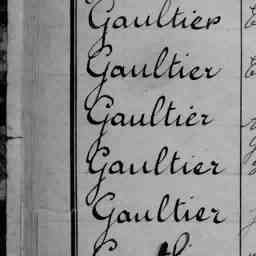 Gaultier
Gaultier
Gaultier
Gaultier
Gaultier